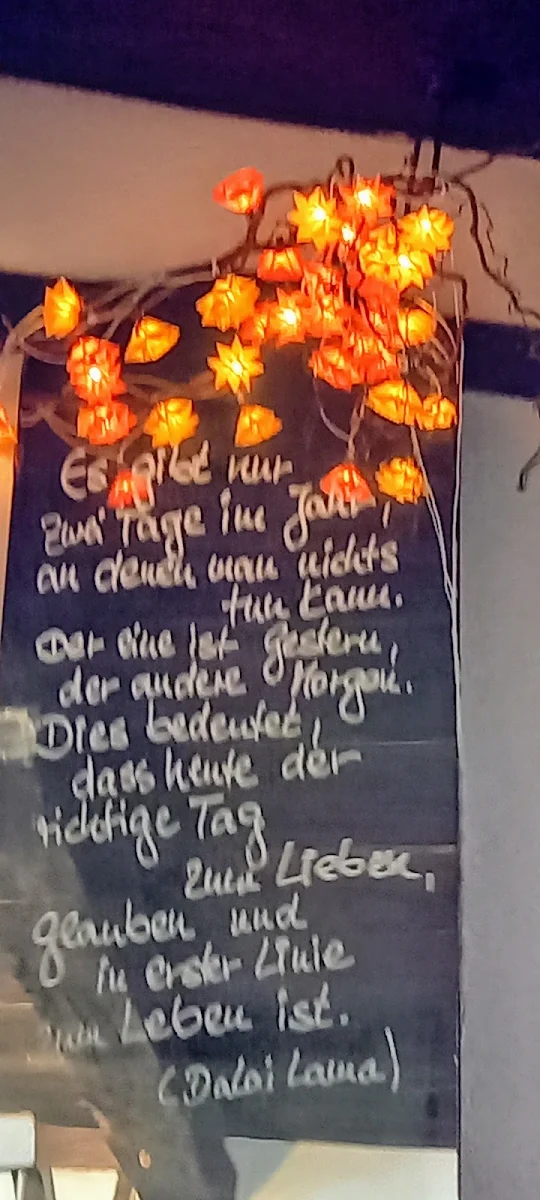 Es gibt nur
zwei Tage im Jahr,
an denen man nichts
tun kann.
Der eine ist Gestern,
der andere Morgen.
Dies bedeutet,
dass heute der
richtige Tag
zum Lieben,
glauben und
in erster Linie
zum Leben ist.
(Dalai Lama)